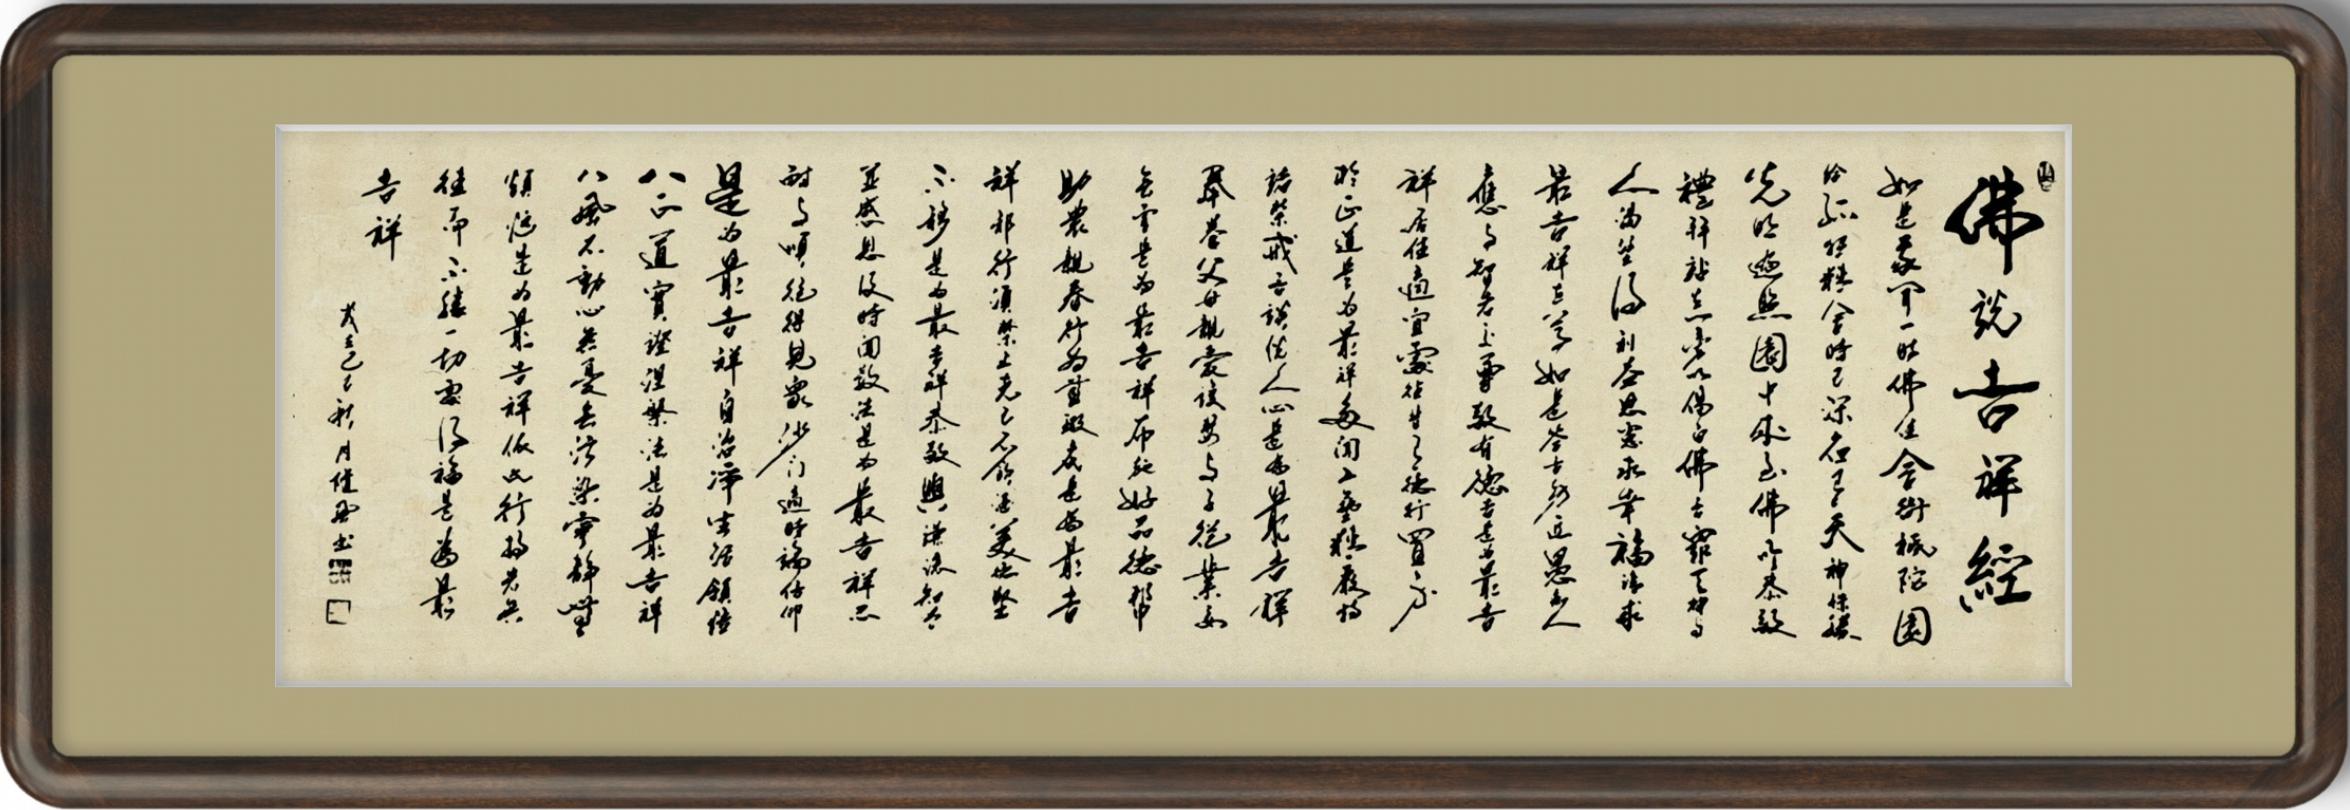 佛說吉祥經
如是我聞一時佛住舍衛祇陀園
給孤獨精舍時已深夜有天神保護
光明遍照園中來至佛所恭敬
禮拜站立一旁以偈白佛言眾天神与
人渴望得利益思慮求幸福請示
最吉祥世尊如是答言勿近愚痴人
應与智者交尊敬有德者是为最吉
祥居住適宜處往昔有德行置身
於正道是为最吉祥多聞工藝精嚴持
諸禁戒言談悅人心是为最吉祥
奉養父母親愛護妻与子從業要
無害是为最吉祥布施好品德幫
助眾親眷行为無瑕疵是为最吉
祥邪行須禁止克己不飲酒美德堅
不移是为最吉祥恭敬與謙讓知足
並感恩及時聞教法是为最吉祥忍
耐与順從得見眾沙门適時論信仰
是为最吉祥自治淨生活領悟
八正道實證涅槃法是为最吉祥
八風不動心無憂無污染寧靜無
煩惱是为最吉祥依此行持者無
往而不勝一切處得福是为最
吉祥
己巳秋月 书